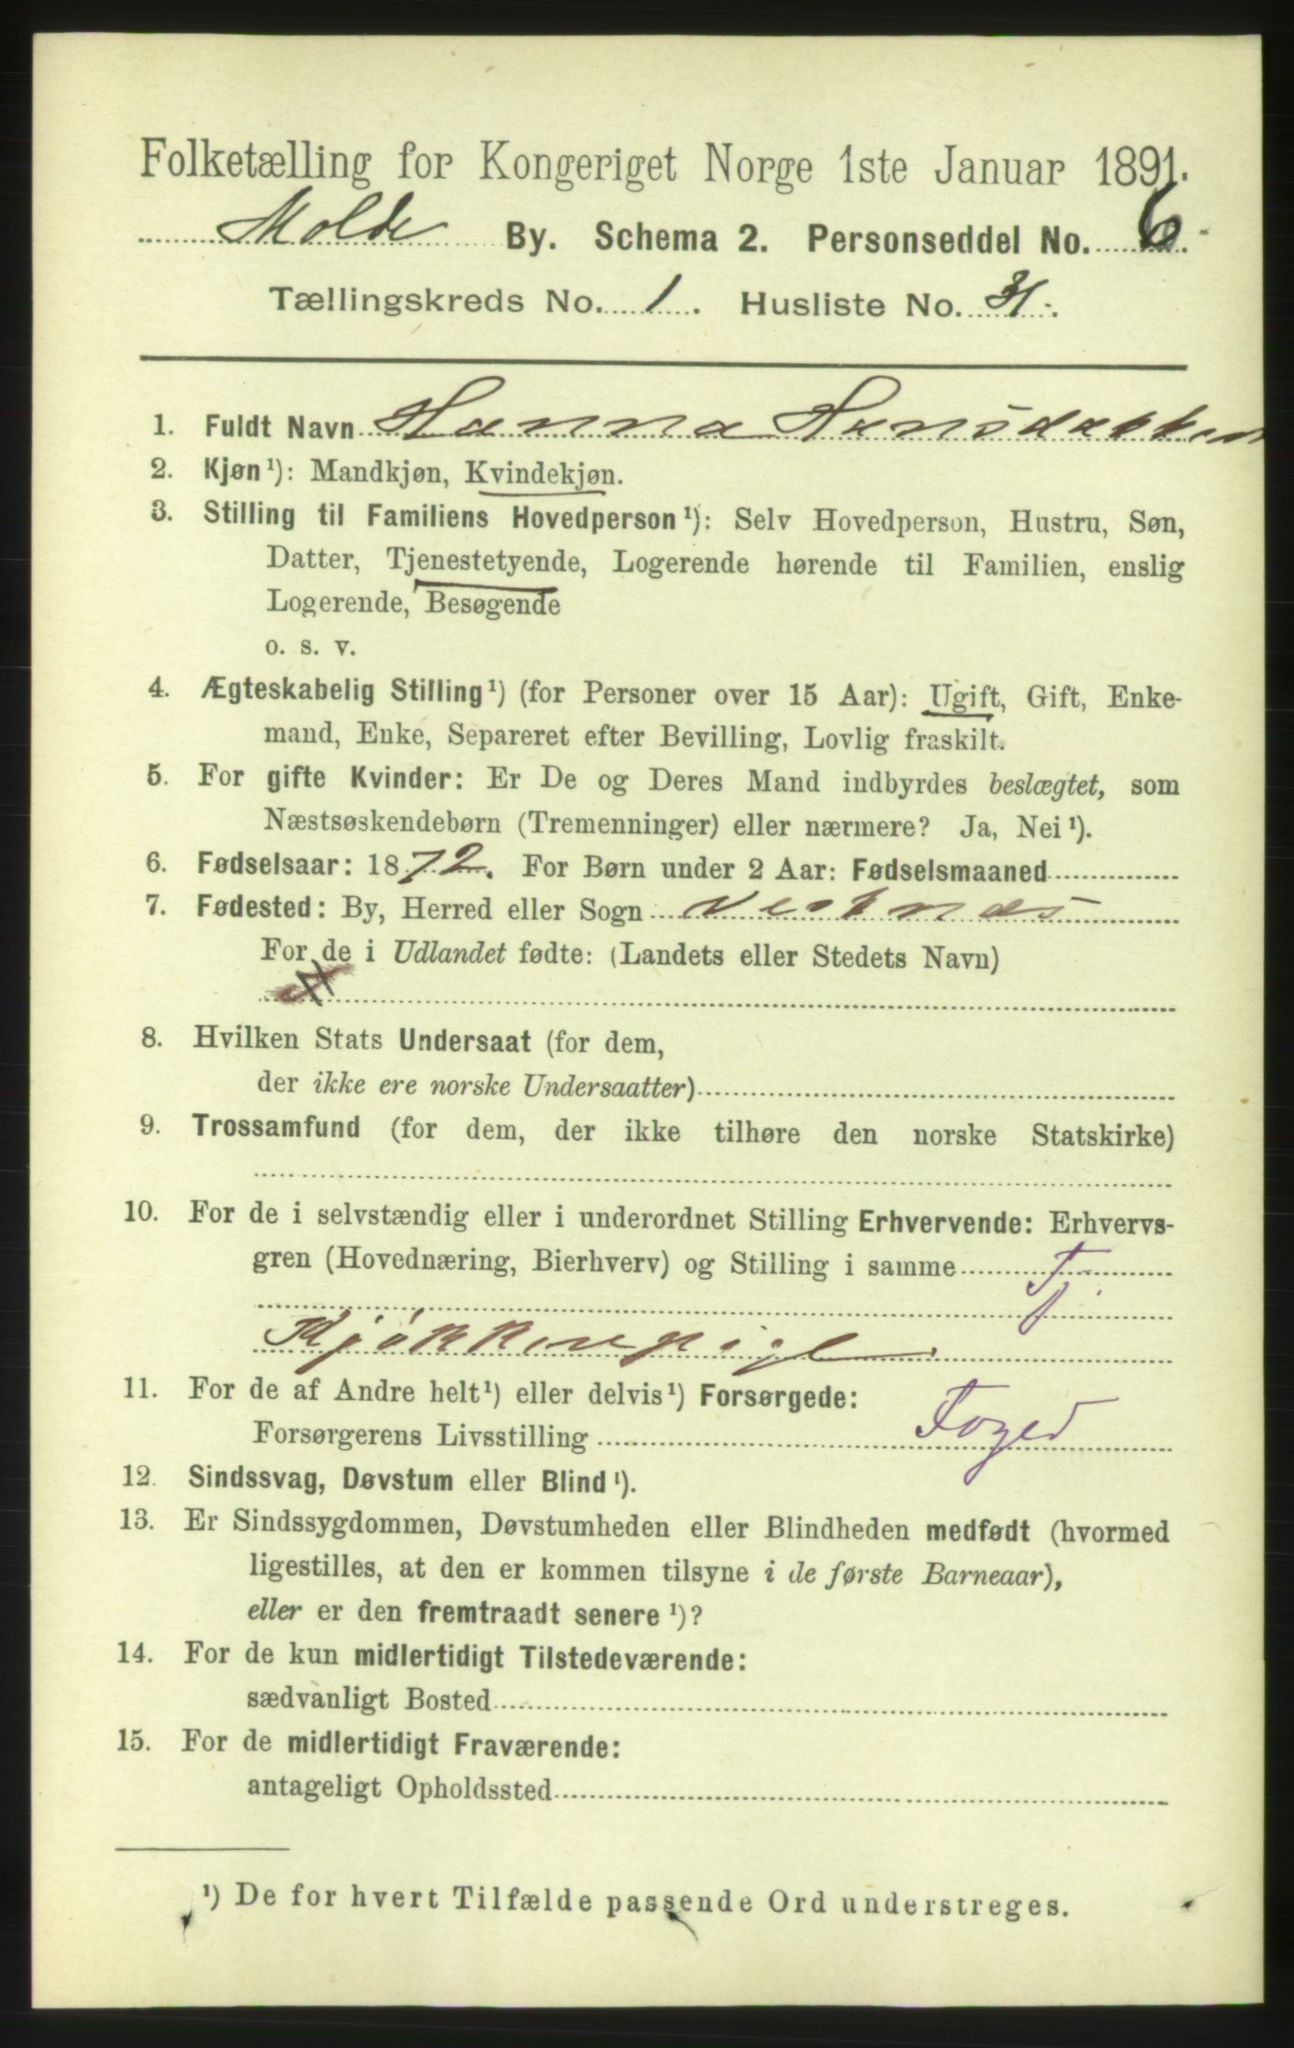 Folketælling for Kongeriget Norge 1ste Januar 1891.
Molde By. Schema 2. Personseddel No. 6
Tællingskreds No. 1. Husliste No. 31.
1. Fuldt Navn Hanna Hansdatter
2. Kjøn¹): Mandkjøn, Kvindekjøn.
3. Stilling til Familiens Hovedperson¹): Selv Hovedperson, Hustru, Søn,
Datter, Tjenestetyende, Logerende hørende til Familien, enslig
Logerende, Besøgende
o. s. v.
4. Ægteskabelig Stilling¹) (for Personer over 15 Aar): Ugift, Gift, Enke-
mand, Enke, Separeret efter Bevilling, Lovlig fraskilt.
5. For gifte Kvinder: Er De og Deres Mand indbyrdes beslægtet, som
Næstsøskendebørn (Tremenninger) eller nærmere? Ja, Nei¹).
6. Fødselsaar: 1872. For Børn under 2 Aar: Fødselsmaaned
7. Fødested: By, Herred eller Sogn Vestnæs
For de i Udlandet fødte: (Landets eller Stedets Navn)
8. Hvilken Stats Undersaat (for dem,
der ikke ere norske Undersaatter)
9. Trossamfund (for dem, der ikke tilhøre den norske Statskirke)
10. For de i selvstændig eller i underordnet Stilling Erhvervende: Erhvervs-
gren (Hovednæring, Bierhverv) og Stilling i samme Tj
Kjøkkenpige
11. For de af Andre helt¹) eller delvis¹) Forsørgede:
Forsørgerens Livsstilling Foged
12. Sindssvag, Døvstum eller Blind¹).
13. Er Sindssygdommen, Døvstumheden eller Blindheden medfødt (hvormed
ligestilles, at den er kommen tilsyne i de første Barneaar),
eller er den fremtraadt senere¹)?
14. For de kun midlertidigt Tilstedeværende:
sædvanligt Bosted
15. For de midlertidigt Fraværende:
antageligt Opholdssted
¹) De for hvert Tilfælde passende Ord understreges.